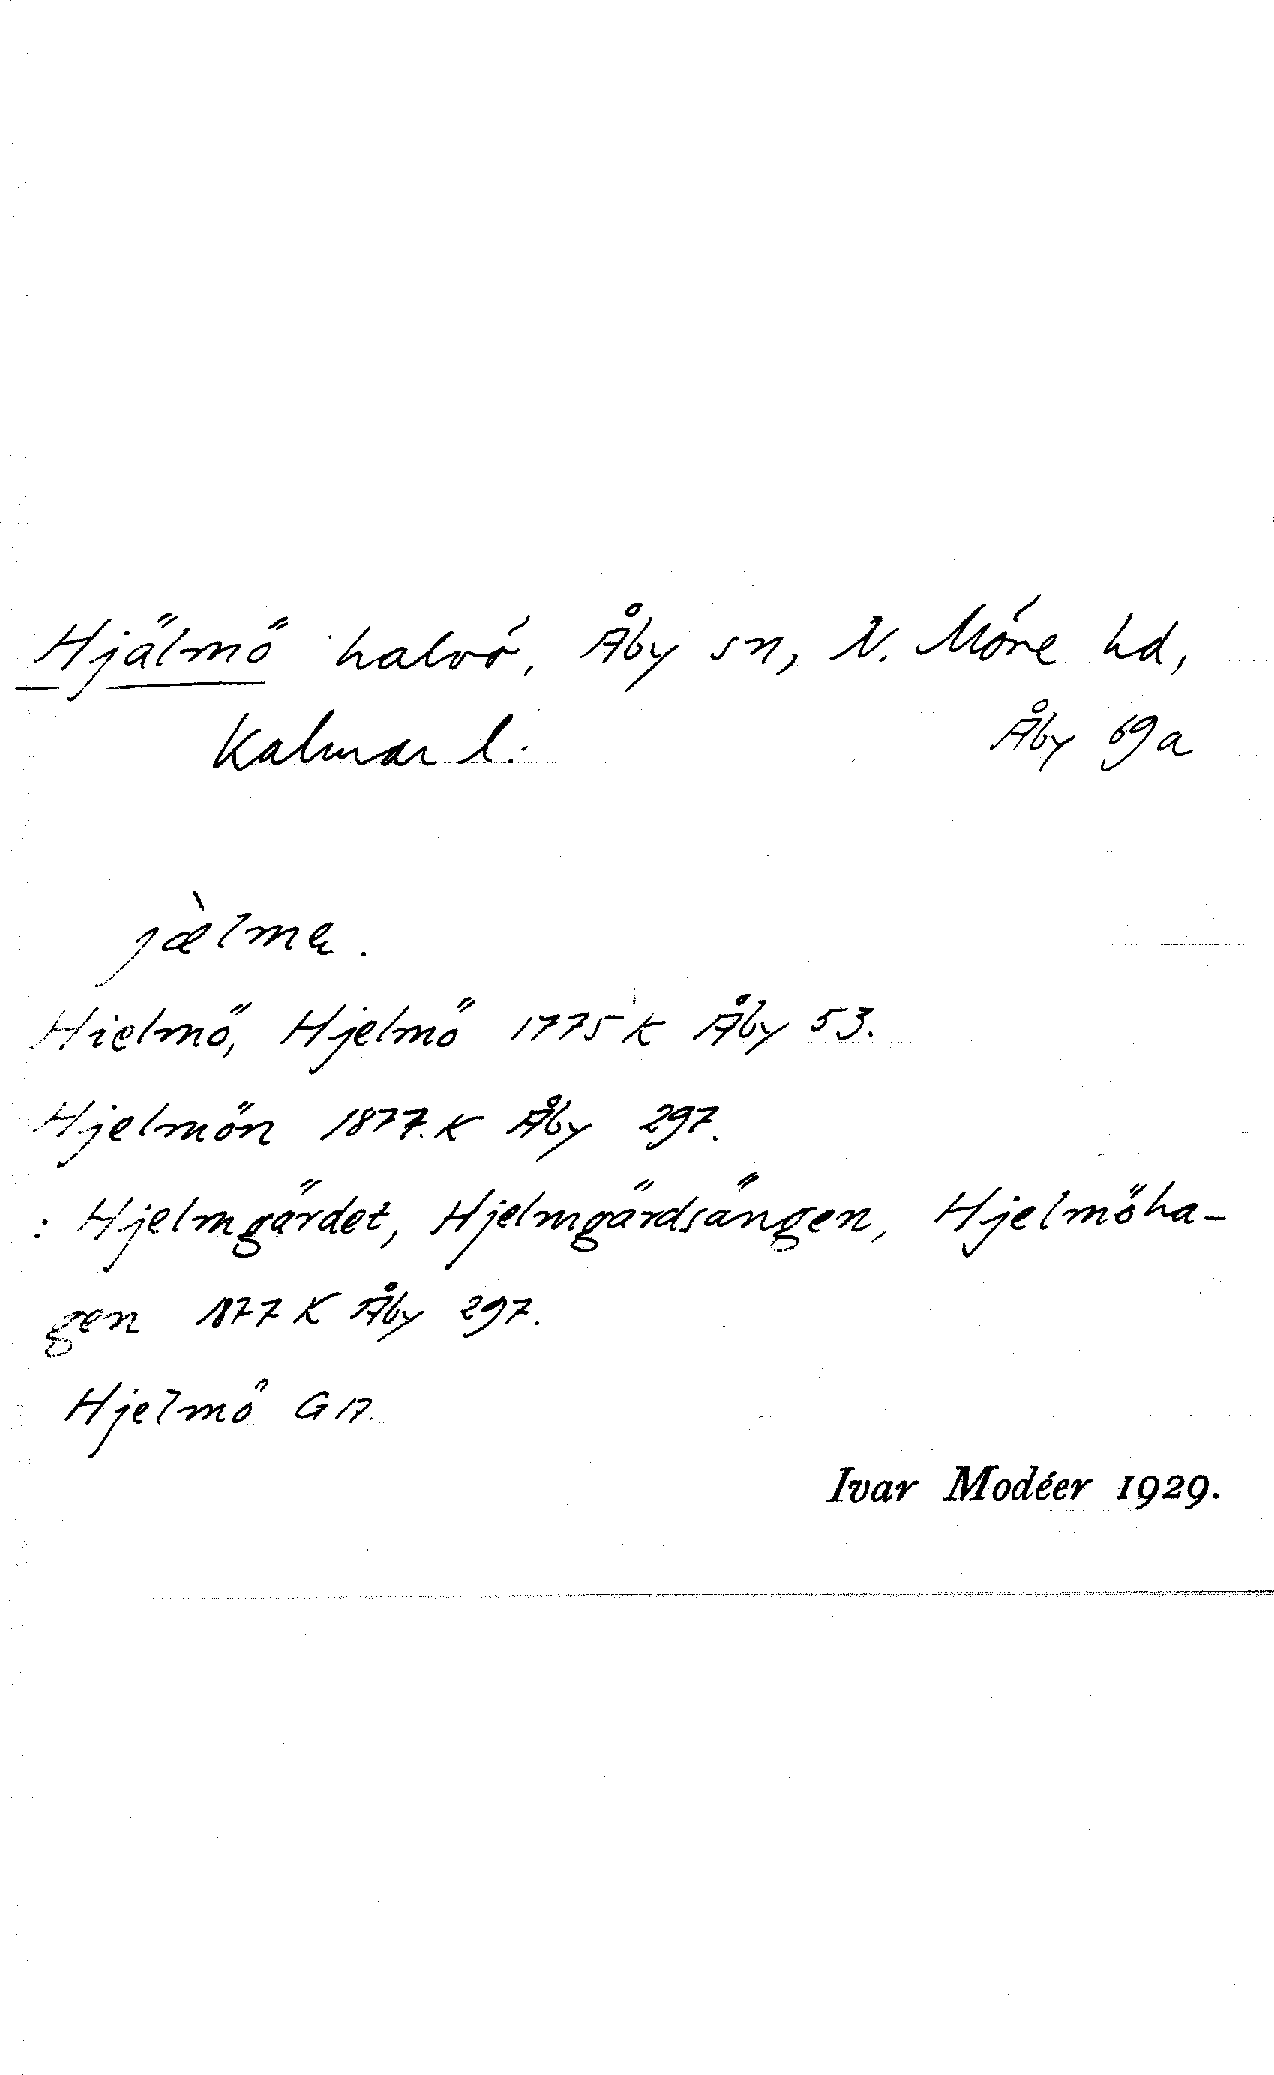 Hjälmö halvö, Åby sn, N. Möre hd,
Kalmar l. Åby 69a
jælmɵ.
Hielmö, Hjelmö 1775 K Åby 53.
Hjelmön 1877. K Åby 297.
: Hjelmgärdet, Hjelmgärdsängen, Hjelmöha-
gen 1877 K Åby 297.
Hjelmö G 17.
Ivar Modéer 1929.